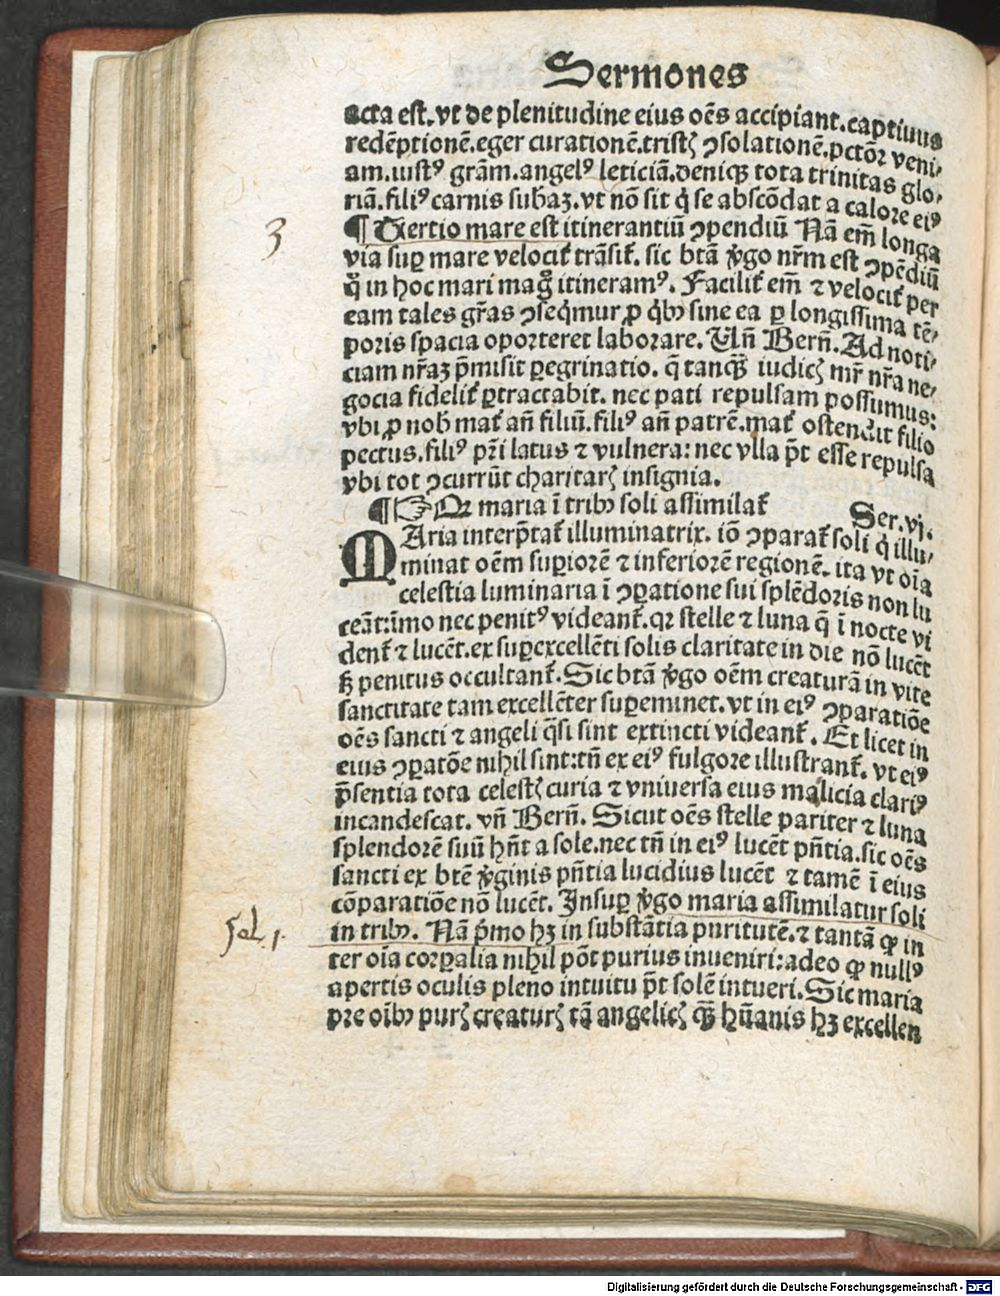 Sermones
acta est. vt de plenitudine eius oēs accipiant. captiuus
redēptionē. eger curationē. tristꝭ ꝯsolationē. pctōꝛ veni⸗
am. iustꝰ grām. angelꝰ leticiā. deniqꝫ tota trinitas glo⸗
riā. filiꝰ carnis subaꝫ. vt nō sit q̇ se abscōdat a calore eiꝰ
3
¶ Tertio mare est itinerantiū ꝯpendiū Nā em̄ longa
via suꝑ mare velocit᷑ trāsit᷑. sic btā ꝟgo nr̄m est ꝯpēdiū
in hoc mari itineramꝰ. Facilit᷑ em̄ ⁊ velocit᷑ per
eam tales gr̄as ꝯseq̇mur ꝓ q̇bꝰ sine ea ꝑ longissima tē⸗
poris spacia oporteret laborare. Un̄ Bern̄. Ad noti⸗
ciam nr̄aꝫ p̄misit ꝑegrinatio. q̄ tanqꝫ̄ iudicꝭ mr̄ nr̄a ne⸗
gocia fidelit᷑ ꝑtractabit. nec pati repulsam possumus:
vbi ꝓ nob̄ mat᷑ an̄ filiū. filiꝰ an̄ patrē. mat᷑ ostendit filio
pectus. filiꝰ pr̄i latus ⁊ vulnera: nec vlla p̄t esse repulsa
vbi tot ꝯcurrūt charitatꝭ insignia.
¶ ☞ Qꝛ maria ī tribꝰ soli assimilat᷑ Ser. vj.
MAria interp̄tat᷑ illuminatrix. iō ꝯparat᷑ soli q̇ illu⸗
minat oēm suꝑiorē ⁊ inferiorē regionē. ita vt oīa
celestia luminaria ī ꝯꝑatione sui splēdoris non lu
ceāt: īmo nec penitꝰ videant᷑. qꝛ stelle ⁊ luna q̄ ī nocte vi
dent᷑ ⁊ lucēt. ex suꝑexcellēti solis claritate in die nō lucēt
ſꝫ penitus occultant᷑. Sic btā ꝟgo oēm creaturā in vite
sanctitate tam excellēter suꝑeminet. vt in eiꝰ ꝯparatiōe
oēs sancti ⁊ angeli q̄si sint extincti videant᷑. Et licet in
eius ꝯꝑatōe nihil sint: tn̄ ex eiꝰ fulgore illustrant᷑. vt eiꝰ
p̄sentia tota celestꝭ curia ⁊ vniuersa eius malicia clariꝰ
incandescat. vn̄ Bern̄. Sicut oēs stelle pariter ⁊ luna
splendorē suū hn̄t a sole. nec tn̄ in eiꝰ lucēt pn̄tia. sic oēs
sancti ex btē ꝟginis pn̄tia lucidius lucēt ⁊ tamē ī eius
cōparatiōe nō lucēt. Insuꝑ ꝟgo maria assimilatur soli
Sol. 1.
in tribꝰ. Nā p̄mo hꝫ in substātia puritutē. ⁊ tantā ꝙ in
ter oīa corꝑalia nihil pōt purius inueniri: adeo ꝙ nullꝰ
apertis oculis pleno intuitu p̄t solē intueri. Sic maria
pre oībꝰ purꝭ creaturꝭ tā angelicꝭ qꝫ̄ hūanis hꝫ excellen
Digitalisierung gefördert durch die Deutsche Forschungsgemeinschaft - DFG